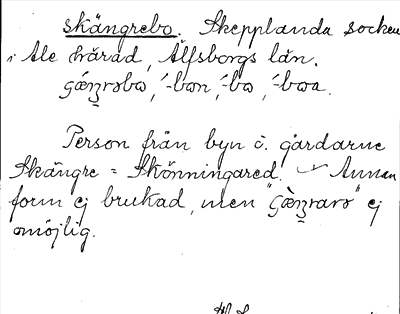 skängrebo. Skepplanda socken
i Ale härad, Älfsborgs län.
Person från byn o. gårdarne
Skängre = Skönningared. Annan
form ej brukad, men " " ej
omöjlig.